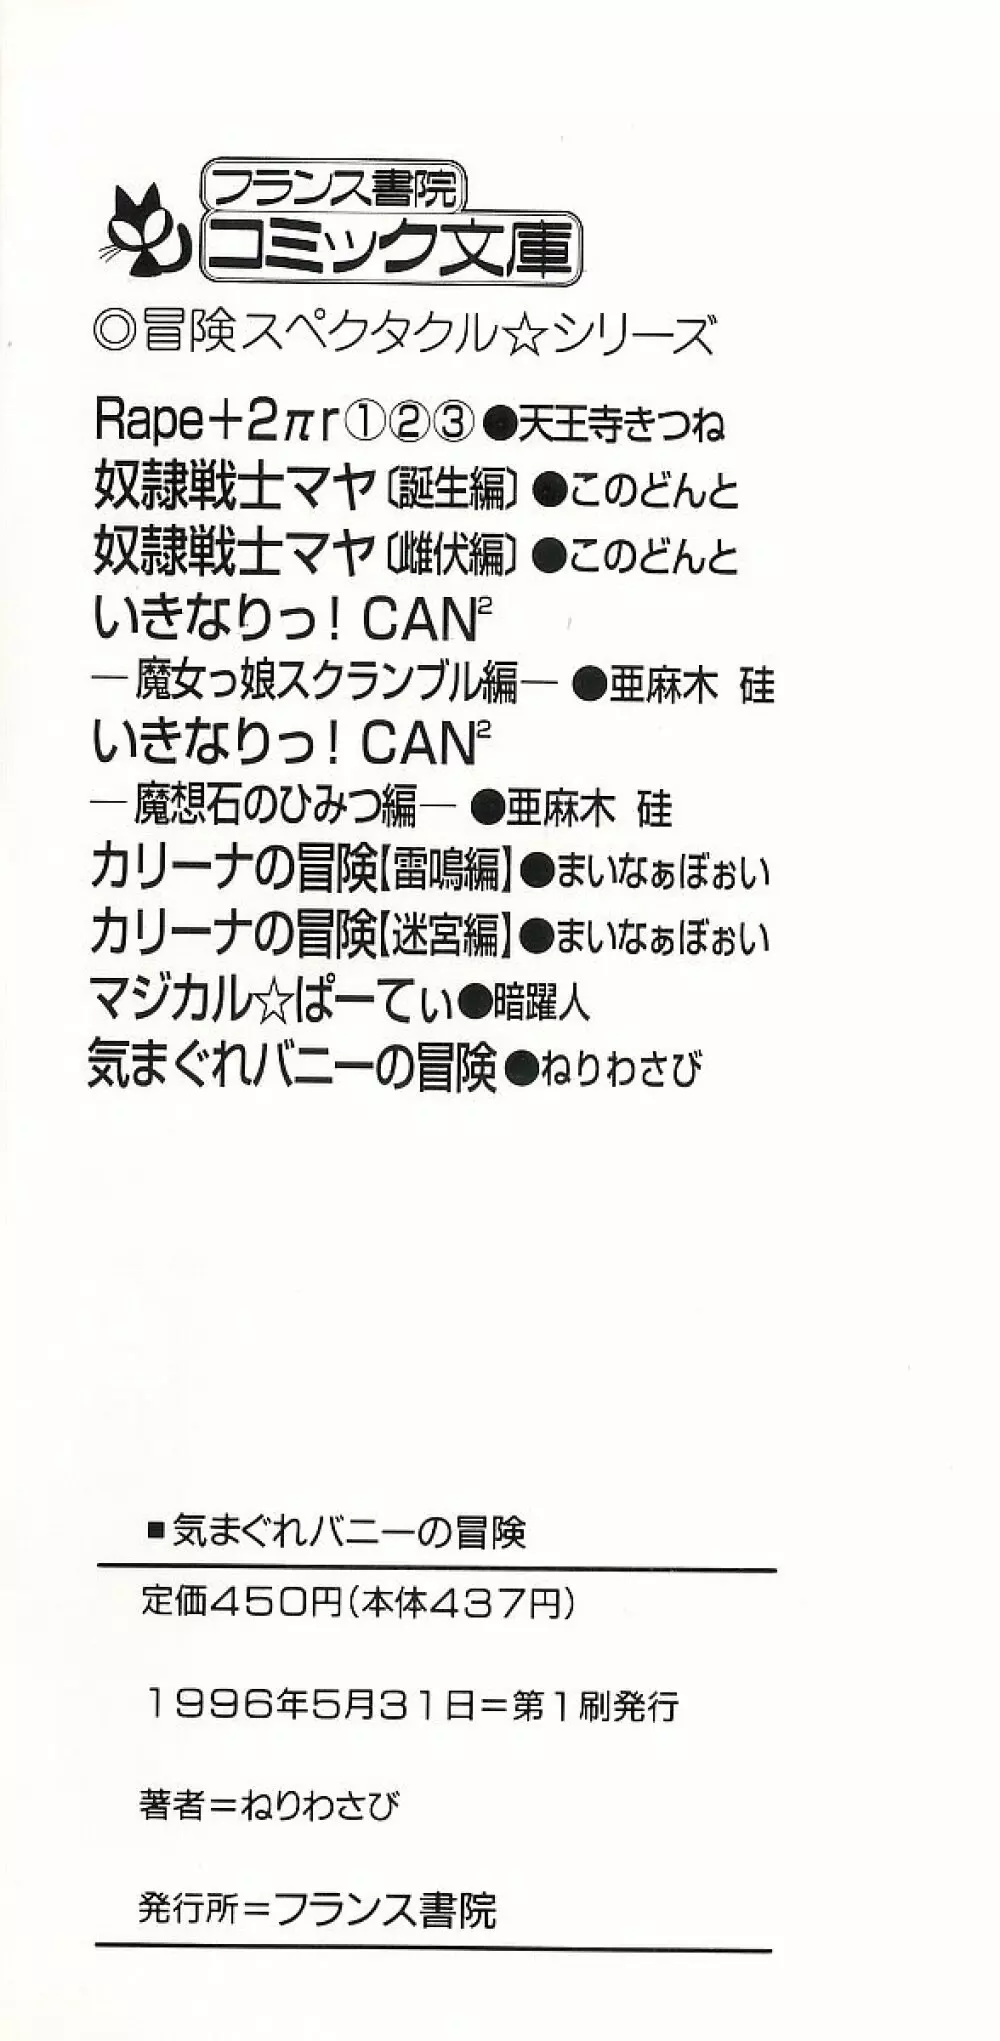 フランス書院
コミック文庫
◎冒険スペクタクル☆シリーズ
Rape+2πr①②③●天王寺きつね
奴隷戦士マヤ〔誕生編〕●このどんと
奴隷戦士マヤ〔雌伏編〕●このどんと
いきなりっ！CAN²
―魔女っ娘スクランブル編―●亜麻木 硅
いきなりっ！CAN²
―魔想石のひみつ編―●亜麻木 硅
カリーナの冒険【雷鳴編】●まいなぁぼぉい
カリーナの冒険【迷宮編】●まいなぁぼぉい
マジカル☆ぱーてぃ●暗躍人
気まぐれバニーの冒険●ねりわさび
■気まぐれバニーの冒険
定価450円(本体437円)
1996年5月31日=第1刷発行
著者=ねりわさび
発行所=フランス書院